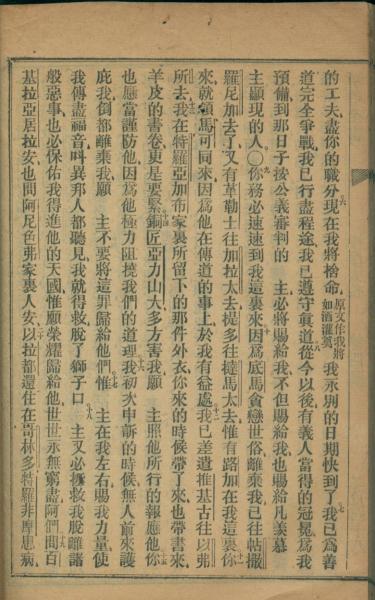 的工夫、盡你的職分、現在我將捨命、原文作我將如酒灌奠我永別的日期快到了、我已爲善
道完全爭戰、我已行盡程途、我已遵守眞道、從今以後有義人當得的冠冕、爲我
預備、到那日子、按公義審判的主、必將賜給我、不但賜給我、也賜給凡羨慕
主顯現的人、○你務必速速到我這裏來、因爲底馬貪戀世俗、離棄我、已往帖撒
羅尼加去了、又有革勒士往加拉太去、提多往撻馬太去、惟有路加在我這裏、你
來就領馬可同來、因爲他在傳道的事上於我有益處、我已差遣推基古往以弗
所去、我在特羅亞加布家裏所留下的那件外衣、你來的時候帶了來、也帶書來、
羊皮的書卷更是要緊、銅匠亞力山大多方害我、願主照他所行的報應他、你
也應當謹防他、因爲他極力阻撓我們的道理、我初次申訴的時候、無人前來護
庇我、倒都離棄我、願主不要將這罪歸給他們、惟主在我左右、賜我力量、使
我傳盡福音、叫異邦人都聽見、我就得救脫了獅子口、主又必拯救我脫離諸
般惡事、也必保佑我得進他的天國、惟願榮耀歸給他世世永無窮盡、阿們、問百
基拉亞居拉安、也問阿尼色弗家裏人安、以拉都還住在哥林多、特羅非摩患病、